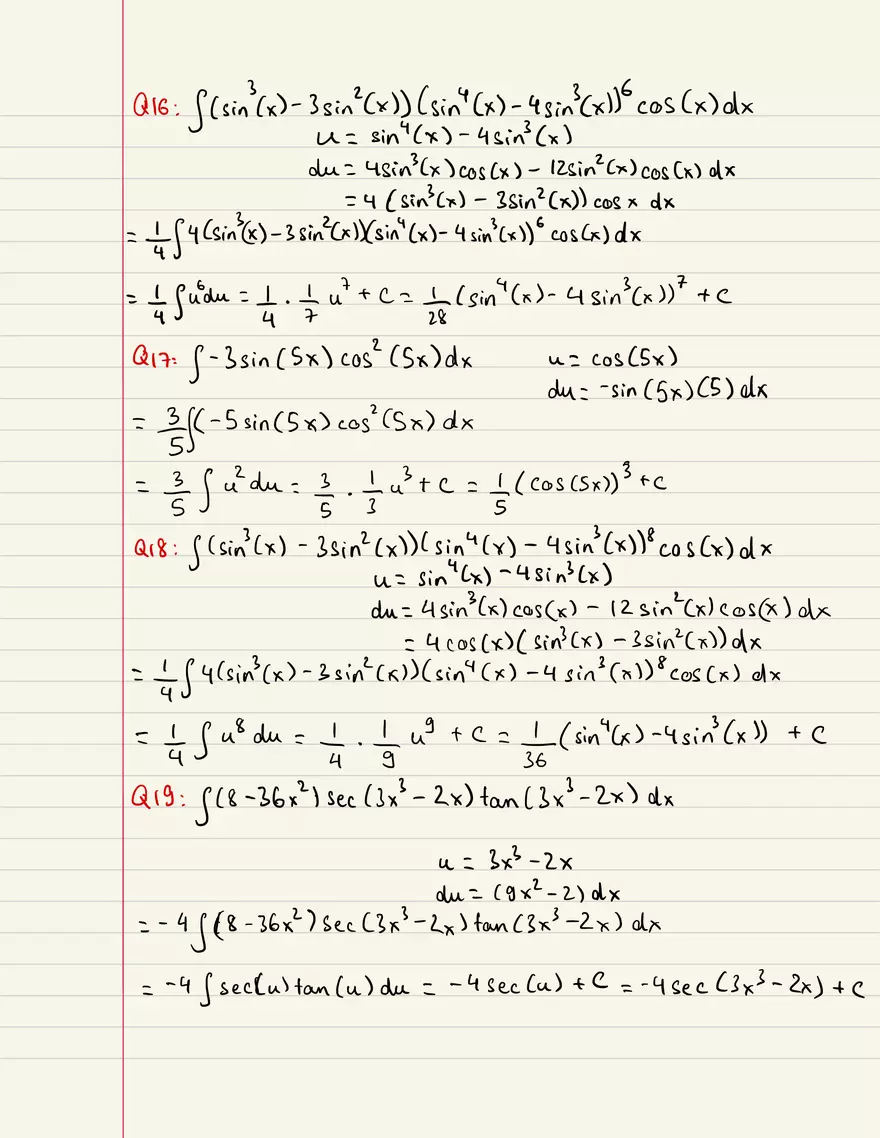 Q16: ∫(sin³(x) - 3sin²(x))(sin⁴(x) - 4sin³(x))⁶ cos(x) dx
u = sin⁴(x) - 4sin³(x)
du = 4sin³(x)cos(x) - 12sin²(x)cos(x) dx
= 4(sin³(x) - 3sin²(x)) cos x dx
= 1/4 ∫4(sin³(x) - 3sin²(x))(sin⁴(x) - 4sin³(x))⁶ cos(x) dx
= 1/4 ∫u⁶du = 1/4 · 1/7 u⁷ + C = 1/28 (sin⁴(x) - 4sin³(x))⁷ + C
Q17: ∫-3sin(5x)cos²(5x)dx u = cos(5x)
du = -sin(5x)(5) dx
= 3/5 ∫(-5sin(5x)cos²(5x) dx
= 3/5 ∫u²du = 3/5 · 1/3 u³ + C = 1/5 (cos(5x))³ + C
Q18: ∫(sin³(x) - 3sin²(x))(sin⁴(x) - 4sin³(x))⁸ cos(x) dx
u = sin⁴(x) - 4sin³(x)
du = 4sin³(x)cos(x) - 12sin²(x)cos(x) dx
= 4cos(x)(sin³(x) - 3sin²(x))dx
= 1/4 ∫4(sin³(x) - 3sin²(x))(sin⁴(x) - 4sin³(x))⁸ cos(x) dx
= 1/4 ∫u⁸ du = 1/4 · 1/9 u⁹ + C = 1/36 (sin⁴(x) - 4sin³(x)) + C
Q19: ∫(8-36x²)sec(3x³-2x)tan(3x³-2x) dx
u = 3x³-2x
du = (9x²-2)dx
= -4 ∫(8-36x²)sec(3x³-2x)tan(3x³-2x) dx
= -4 ∫sec(u)tan(u)du = -4sec(u) + C = -4sec(3x³-2x) + C